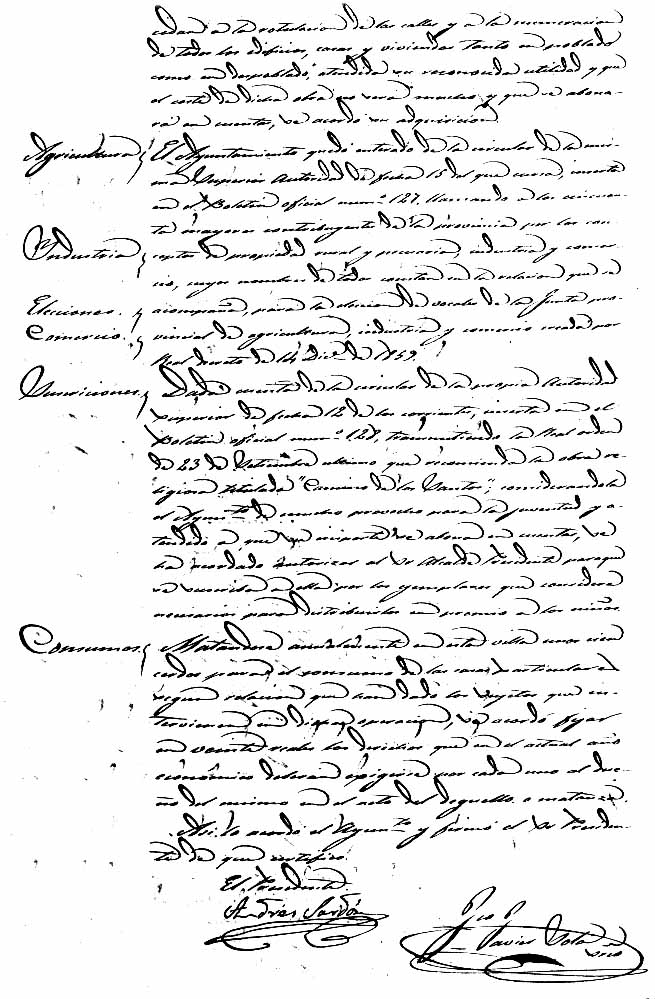 cedan a la rotulacion de las calles y a la numeracion
de todos los edificios, casas y viviendas tanto en poblado
como en despoblado; atendida su reconocida utilidad y que
el coste de dicha obra no será mucho y que se abona-
rá en cuentas, se acordó su adquisicion.
Agricultura El Ayuntamiento quedó enterado de la circular de la mis-
ma Superior Autoridad de fecha 15 del que cursa, inserta
en el Boletin oficial num.º 127, llamando a los cincuen-
ta mayores contribuyentes de la provincia por los con-
Industria ceptos de propiedad rural y pecuaria, industria y comer-
cio, cuyos nombres de todos constan en la relacion que se
Elecciones. acompaña, para la eleccion de vocales de la Junta pro-
Comercio. vincial de agricultura, industria y comercio creada por
Real decreto de 14 Dic.e de 1859.
Suscriciones Dada cuenta de la circular de la propia Autoridad
superior de fecha 12 de los corrientes, inserta en el
Boletin oficial num.º 128, transmitiendo la Real orden
de 23 de Setiembre ultimo que recomienda la obra re-
ligiosa titulada "Camino de los Santos"; considerandola
el Ayunt.to de mucho provecho para la juventud y a-
tendido a que su importe se abona en cuentas, se
ha acordado autorizar al Sr Alcalde Presidente para que
se suscriba a ella por los ejemplares que considere
necesarios para distribuirlos en premio a los niños.
Consumos Matandose anualmente en esta villa unos cien
cerdos para el consumo de las casas particulares
segun relacion que han dado los sujetos que in-
tervienen en dicha operacion, se acordó fijar
en veinte reales los derechos que en el actual año
económico deberan exigirse por cada uno al due-
ño del mismo en el acto del deguello o matanza.
Asi lo acordó el Ayunt.to y firmó el Sr Presiden-
te de que certifico.
El Presidente
Andres Jardón
Javier Sola
Srio